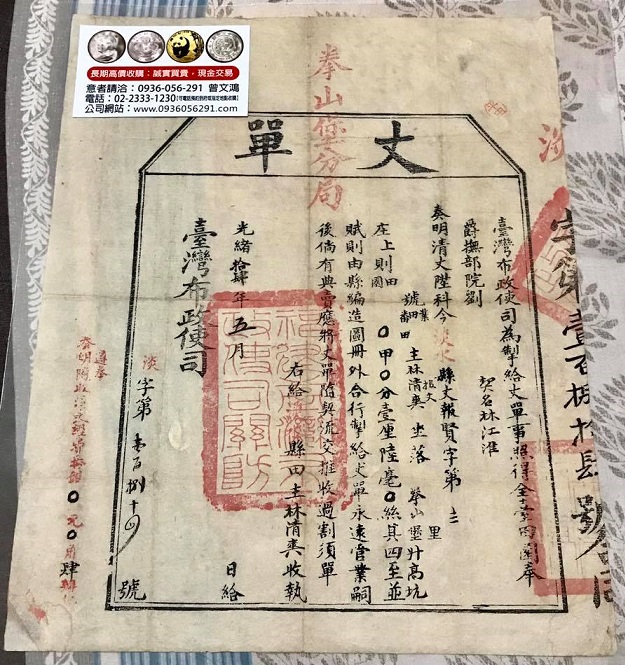 長期高價收購：誠實買賣，現金交易
意者請洽：0936-056-291 曾文鴻
電話：02-2333-1230
公司網站：www.0936056291.com
拳山堡分局
丈單
臺灣布政使司為掣給丈單事照得全臺田園奉
爵撫部院劉
契名林江淮
奏明清丈陞科今淡水縣丈報賢字第
號
業主林清爽坐落拳山堡升高坑
里
庄上則田園
〇甲〇分壹厘陸毫〇絲其四至並
賦則由縣編造圖冊外合行掣給丈單永遠管業嗣
後倘有典賣應將丈單隨契流交推收過割須單
右給
縣田主林清爽收執
光緒拾肆年五月
日給
臺灣布政使司
淡字第壹百捌十四號
遵奉
〇元〇角肆
字第壹百捌拾肆號